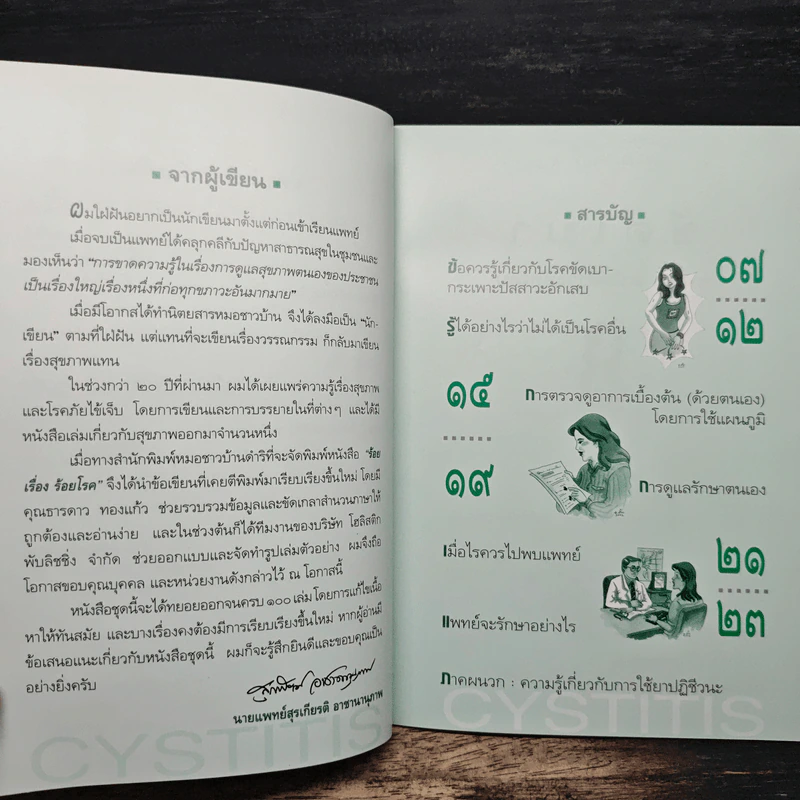 จากผู้เขียน
ผมใฝ่ฝันอยากเป็นนักเขียนมาตั้งแต่ก่อนเข้าเรียนแพทย์
เมื่อจบเป็นแพทย์ได้คลุกคลีกับปัญหาสาธารณสุขในชุมชนและ
มองเห็นว่า “การขาดความรู้ในเรื่องการดูแลสุขภาพตนเองของประชาชน
เป็นเรื่องใหญ่เรื่องหนึ่งที่ก่อทุกขภาวะอันมากมาย”
เมื่อมีโอกาสได้ทำนิตยสารหมอชาวบ้าน จึงได้ลงมือเป็น “นัก-
เขียน” ตามที่ใฝ่ฝัน แต่แทนที่จะเขียนเรื่องวรรณกรรม ก็กลับมาเขียน
เรื่องสุขภาพแทน
ในช่วงกว่า ๒๐ ปีที่ผ่านมา ผมได้เผยแพร่ความรู้เรื่องสุขภาพ
และโรคภัยไข้เจ็บ โดยการเขียนและการบรรยายในที่ต่างๆ และได้มี
หนังสือเล่มเกี่ยวกับสุขภาพออกมาจำนวนหนึ่ง
เมื่อทางสำนักพิมพ์หมอชาวบ้านดำริที่จะจัดพิมพ์หนังสือ “ร้อย
เรื่อง ร้อยโรค” จึงได้นำข้อเขียนที่เคยตีพิมพ์มาเรียบเรียงขึ้นใหม่ โดยมี
คุณธารดาว ทองแก้ว ช่วยรวบรวมข้อมูลและขัดเกลาสำนวนภาษาให้
ถูกต้องและอ่านง่าย และในช่วงต้นก็ได้ทีมงานของบริษัท โฮลิสติก
พับลิชชิ่ง จำกัด ช่วยออกแบบและจัดทำรูปเล่มตัวอย่าง ผมจึงถือ
โอกาสขอบคุณบุคคล และหน่วยงานดังกล่าวไว้ ณ โอกาสนี้
หนังสือชุดนี้จะได้ทยอยออกจนครบ ๑๐๐ เล่ม โดยการแก้ไขเนื้อ
หาให้ทันสมัย และบางเรื่องคงต้องมีการเรียบเรียงขึ้นใหม่ หากผู้อ่านมี
ข้อเสนอแนะเกี่ยวกับหนังสือชุดนี้ ผมก็จะรู้สึกยินดีและขอบคุณเป็น
อย่างยิ่งครับ
นายแพทย์สุรเกียรติ อาชานานุภาพ
CYSTITIS
สารบัญ
ข้อควรรู้เกี่ยวกับโรคขัดเบา-
กระเพาะปัสสาวะอักเสบ
๐๗
รู้ได้อย่างไรว่าไม่ได้เป็นโรคอื่น
๑๒
๑๕
การตรวจดูอาการเบื้องต้น (ด้วยตนเอง)
โดยการใช้แผนภูมิ
๑๙
การดูแลรักษาตนเอง
เมื่อไรควรไปพบแพทย์
๒๑
แพทย์จะรักษาอย่างไร
๒๓
ภาคผนวก : ความรู้เกี่ยวกับการใช้ยาปฏิชีวนะ
CYSTITIS